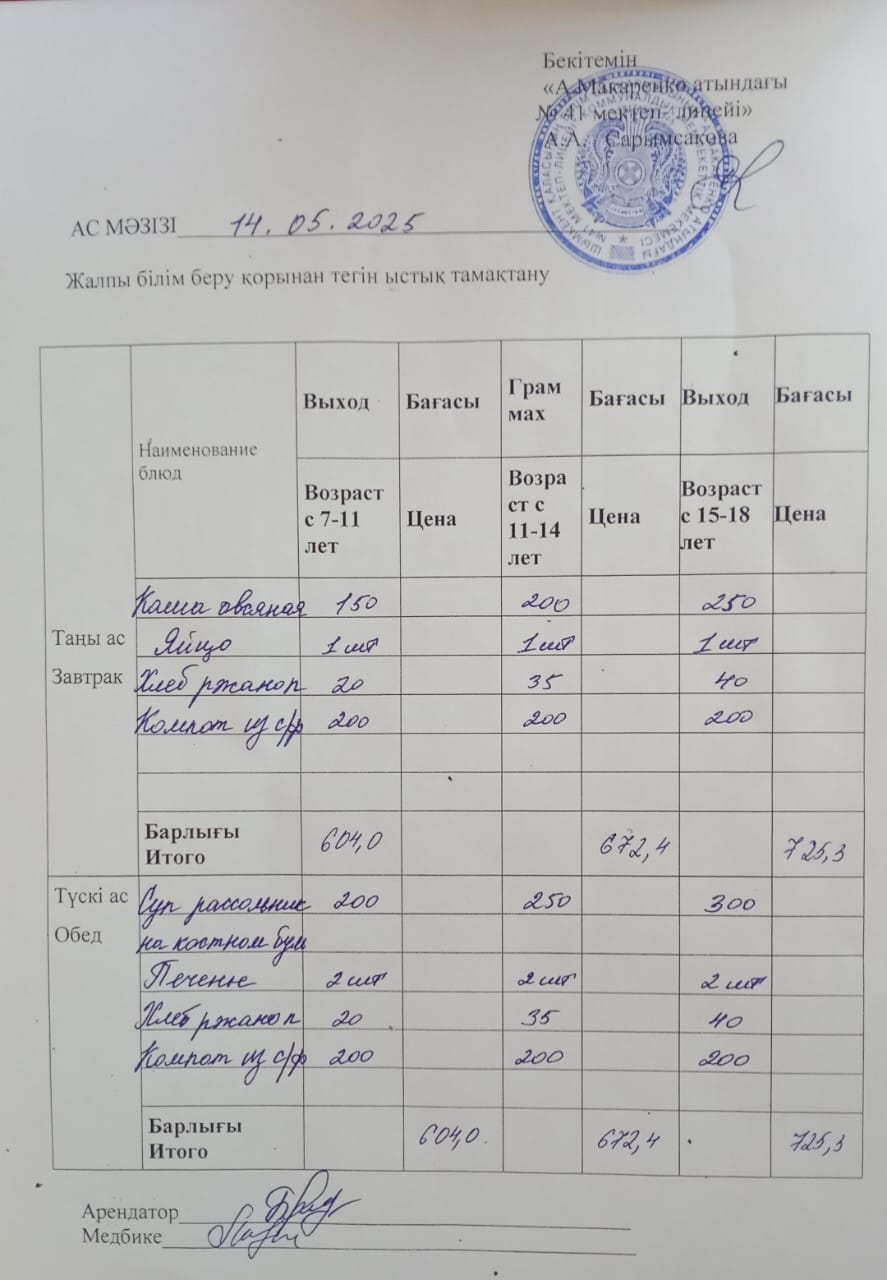 Бекітемін
«А.Макаренко атындағы
№ 41 мектеп- лицейі»
А.А. Сарымсақова
АС МӘЗІЗІ 14.05.2025
Жалпы білім беру қорынан тегін ыстық тамақтану
Наименование блюд Выход Бағасы Грам мах Бағасы Выход Бағасы
Возраст с 7-11 лет Цена Возра ст с 11-14 лет Цена Возраст с 15-18 лет Цена
Таңы ас
Завтрак
Каша овсяная 150 200 250
Яйцо 1 шт 1 шт 1 шт
Хлеб ржаноп 20 35 40
Компот из с/ф 200 200 200
Барлығы Итого 604,0 672,4 725,3
Түскі ас
Обед
Суп рассольник 200 250 300
на костном бул
Печенье 2 шт 2 шт 2 шт
Хлеб ржаноп 20 35 40
Компот из с/ф 200 200 200
Барлығы Итого 604,0 672,4 725,3
Арендатор
Медбике